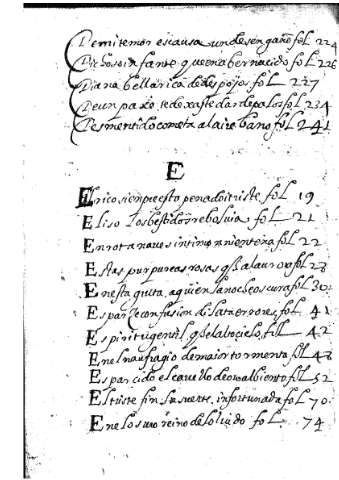 De mi temor es causa un desengaño fol 224
Dichoso infante que en a bernacido fol 226
Diana bella rica de despojos fol. 227
De un paxo te dexaste dar de palos fol 234
Desmentido cometa al aire bano fol 241
E
Elrico sienpre esto penado i triste fol 19
Eliso los bestidos reboluia fol 21
En rota naue sin timon fol 22
Estas purpureas rosas q̃ el aurora fol 28
En esta gruta aqui en la noche oscura fol 30
Esparze confusion fol. 41
Espiritu gentil q̃ del alto cielo, fol. 42
En el naufragio de maior tormenta fol 48
Esparcido el cauello de oro al biento fol 52
El triste fin, la suerte infortunada fol 70.
En el oscuro reino del oluido fol. 74